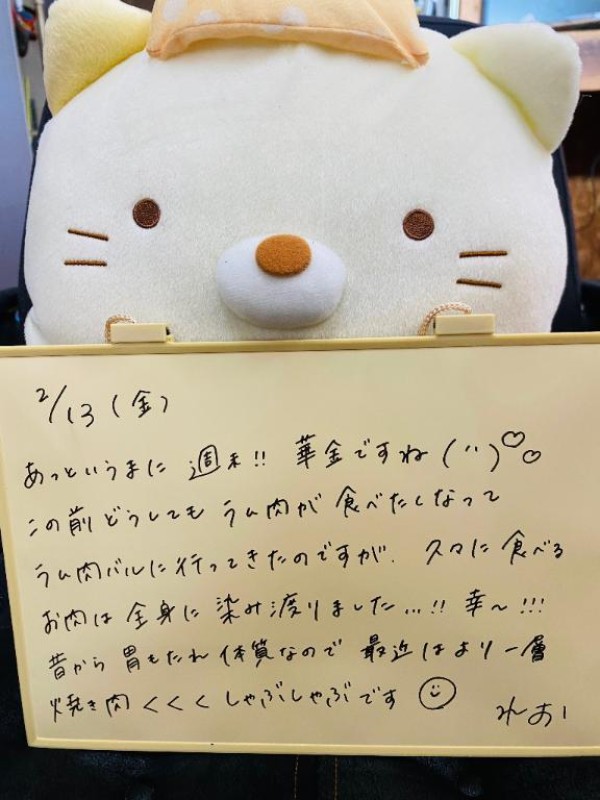 2/13(金)
あっというまに 週末!! 華金ですね(¨)♡♡
この前どうしても ラム肉が 食べたくなって
ラム肉バルに行ってきたのですが、久々に食べる
お肉は全身に 染み渡りました...!! 幸〜!!!
昔から 胃もたれ 体質なので 最近はより一層
焼き肉くくくしゃぶしゃぶです☺